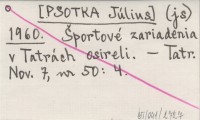 [PSOTKA Július] (js)
1960. Športové zariadenia
v Tatrách osireli. – Tatr.
Nov. 7, nr 50: 4.